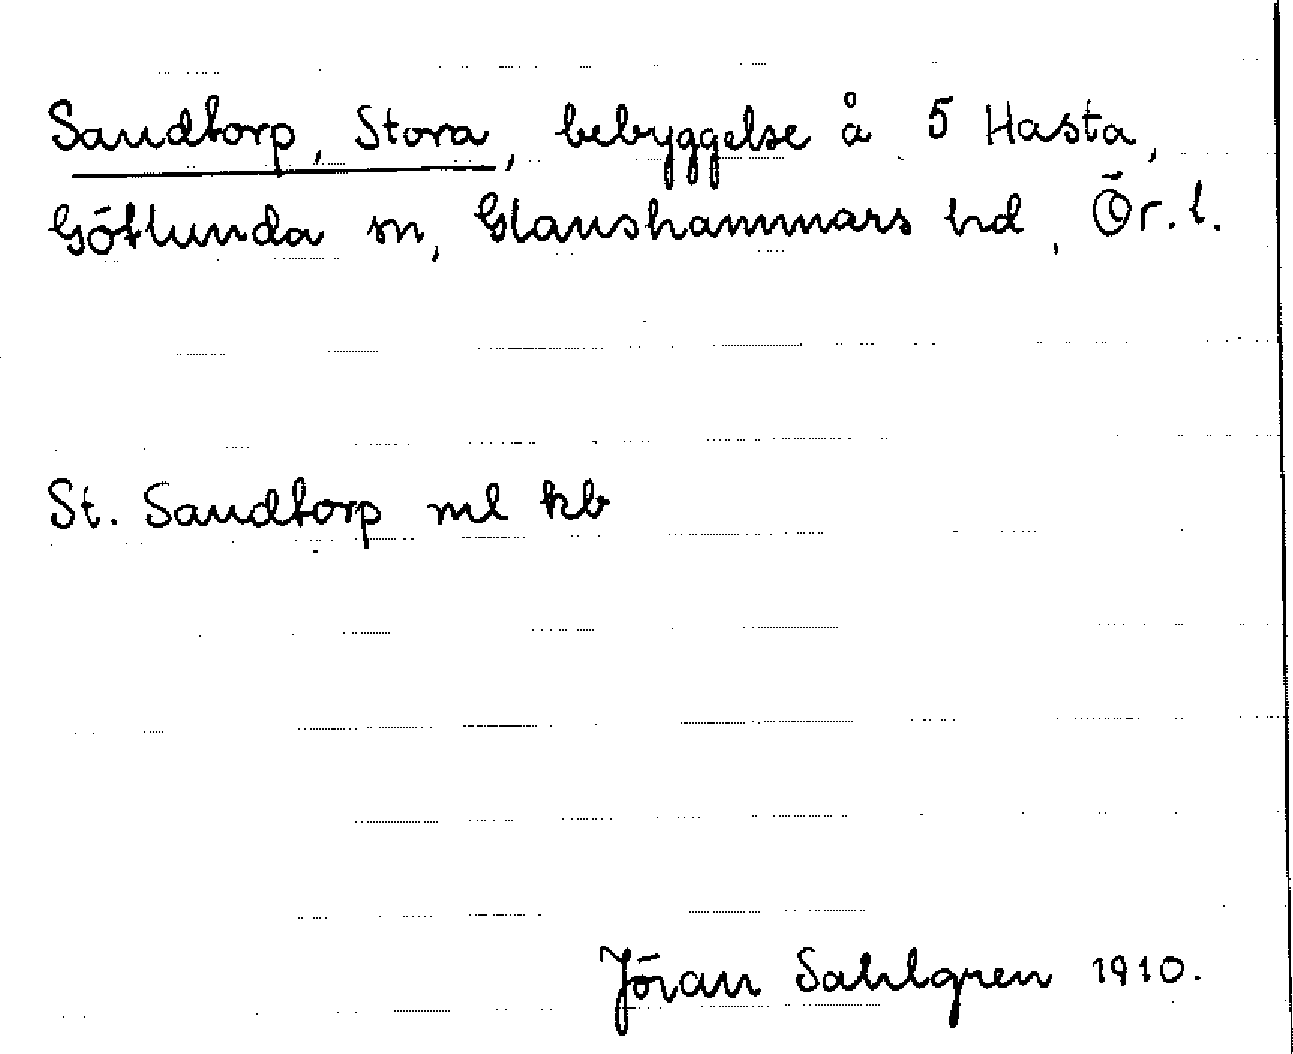 Sandtorp, Stora, bebyggelse å 5 Hasta,
Götlunda sn, Glanshammars hd, Ör. l.
St. Sandtorp ml kb
Jöran Sahlgren 1910.